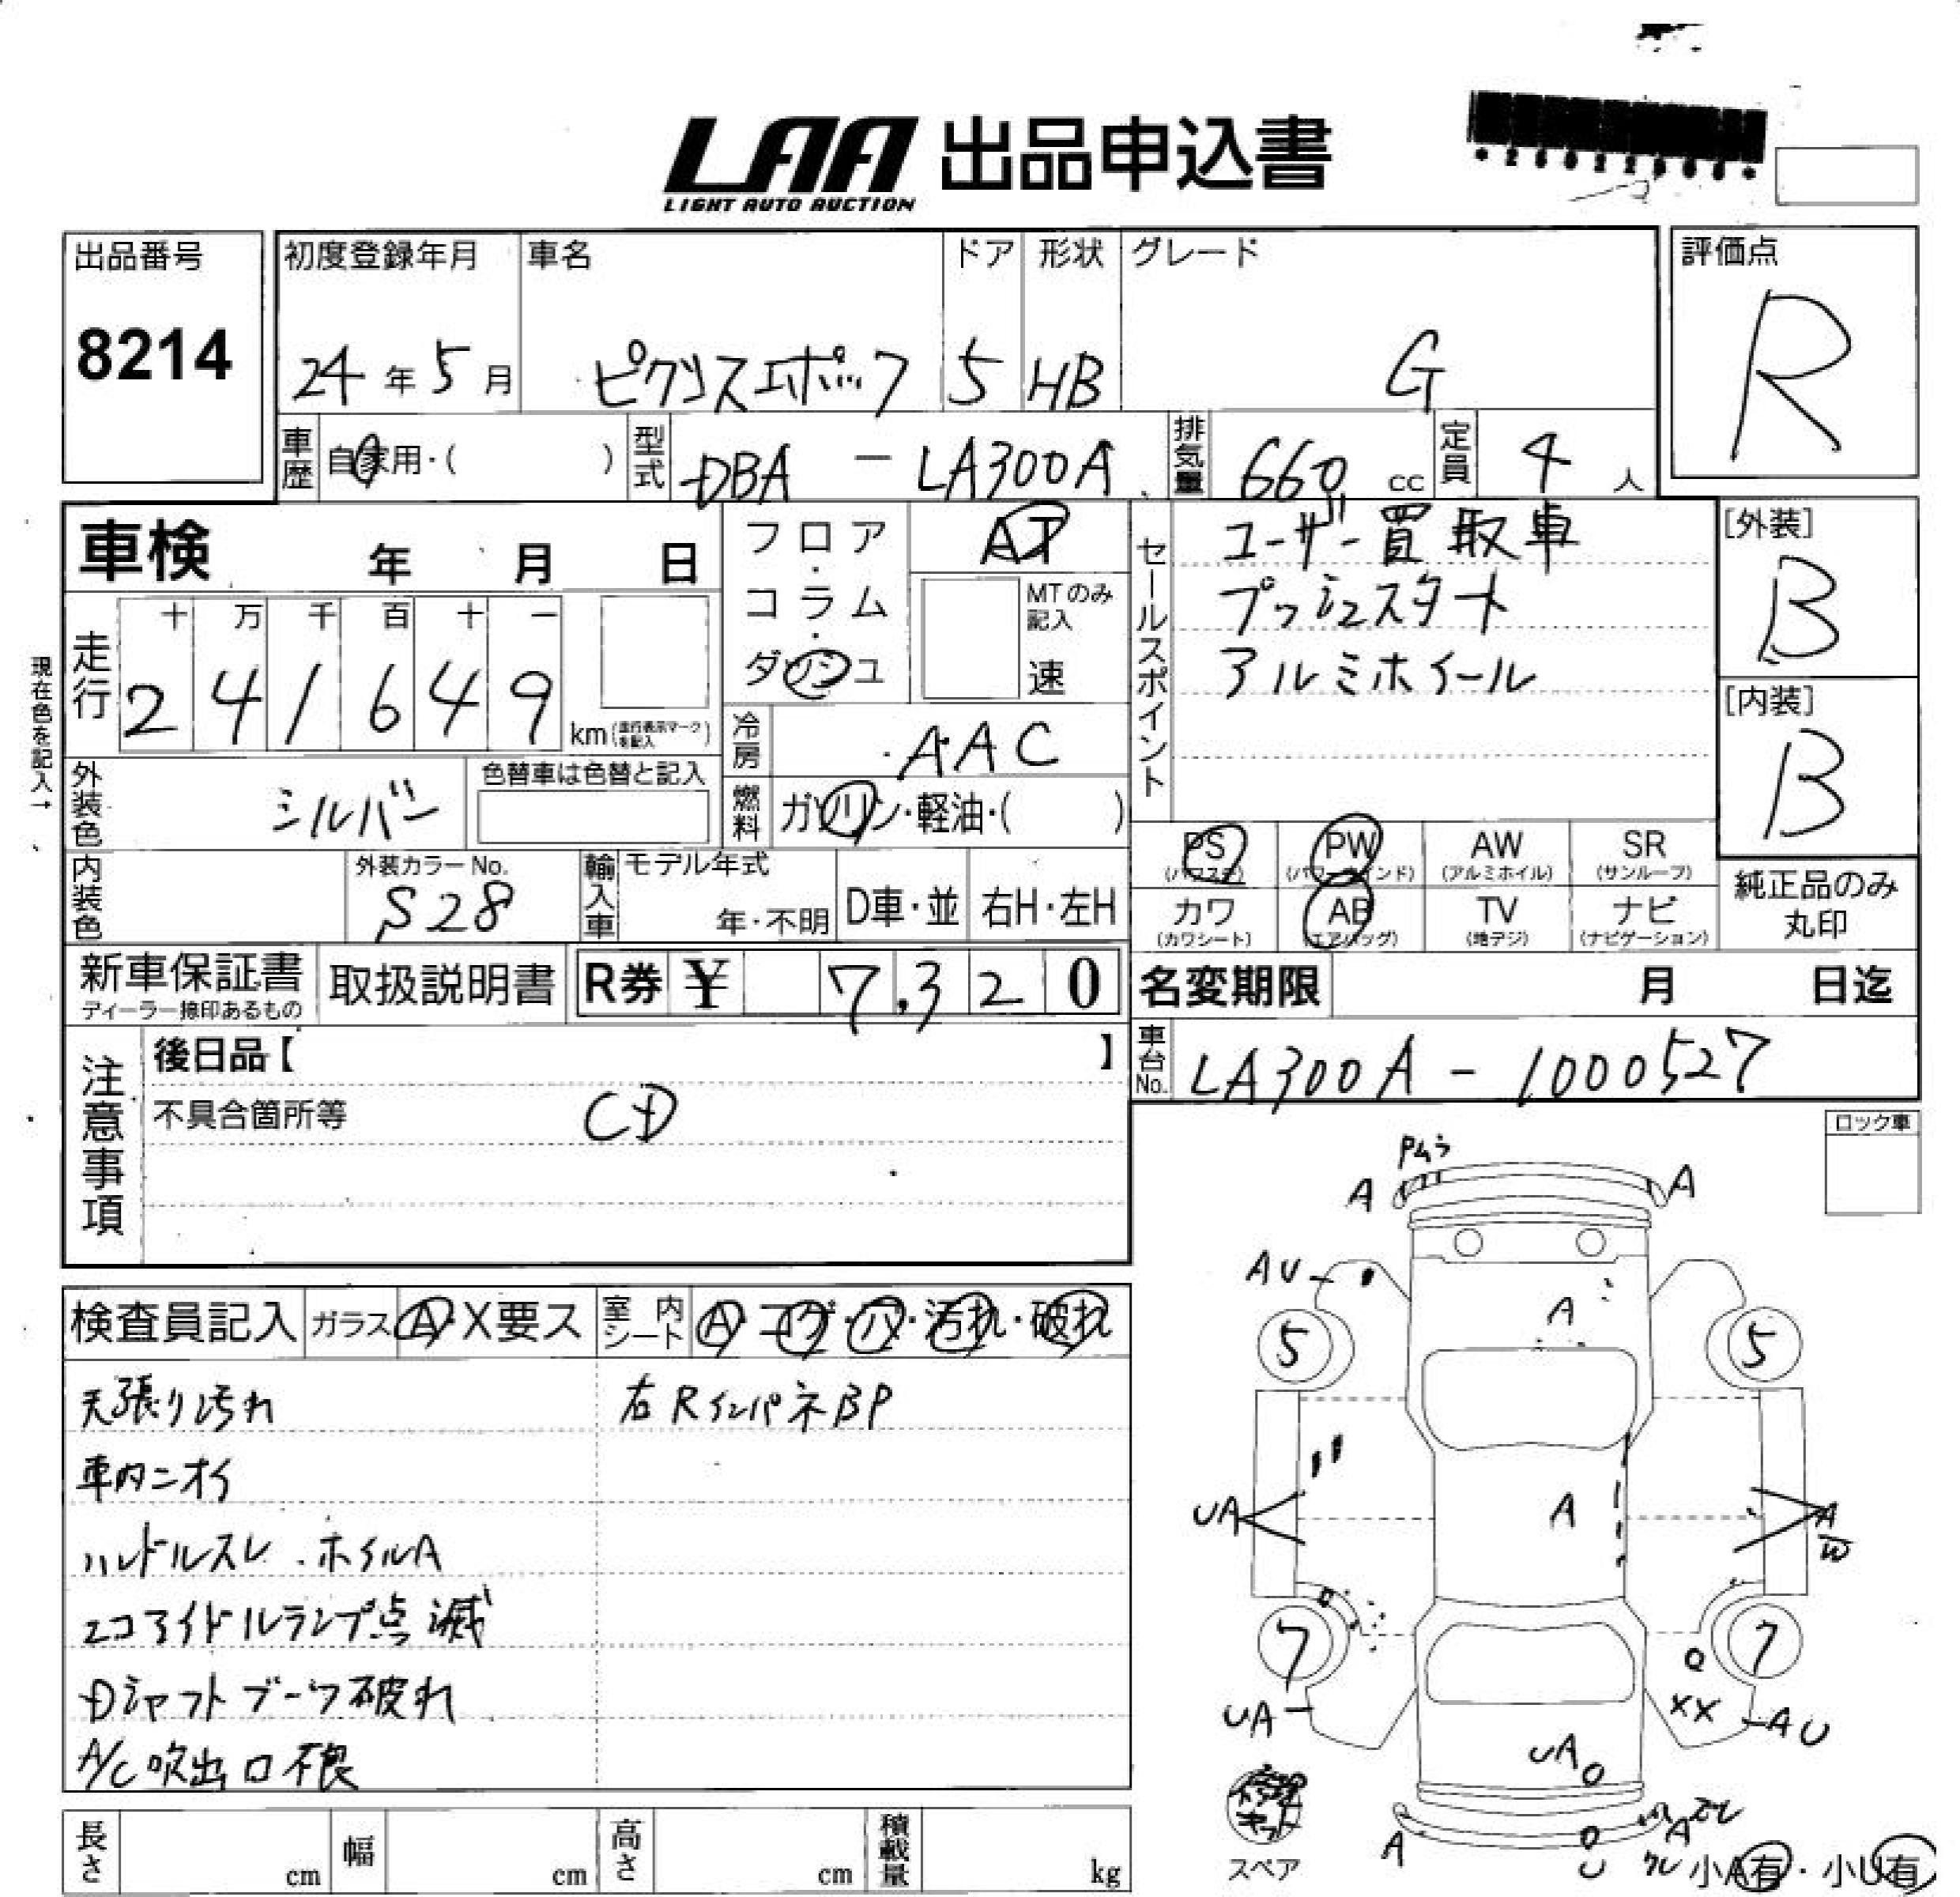 LAA 出品申込書
LIGHT AUTO AUCTION
出品番号
8214
初度登録年月
24年5月
車名
ピクシスエポック
ドア
5
形状
HB
グレード
G
評価点
R
車歴
自家用・( )
型式
DBA - LA300A
排気量
660 cc
定員
4 人
車検 年 月 日
フロア・コラム・ダッシュ
AT
MTのみ記入
速
セールスポイント
ユーザー買取車
プッシュスタート
アルミホイール
[外装]
B
[内装]
B
現在色を記入→
走行
十 万 千 百 十 一
2 4 1 6 4 9
km (走行表示マークを記入)
冷房
AAC
外装色
シルバー
色替車は色替と記入
燃料
ガソリン・軽油・( )
内装色
外装カラーNo.
S28
輸入車
モデル年式
年・不明
D車・並
右H・左H
PS (パワステ)
PW (パワーウインド)
AW (アルミホイル)
SR (サンルーフ)
カワ (カワシート)
AB (エアバッグ)
TV (地デジ)
ナビ (ナビゲーション)
純正品のみ
丸印
新車保証書
ディーラー捺印あるもの
取扱説明書
R券 ¥ 7,320
名変期限 月 日迄
車台No.
LA300A - 1000527
注意事項
後日品【 】
不具合箇所等
CD
ロック車
検査員記入
ガラス A・X要ス
室内シート A・コゲ・穴・汚れ・破れ
天張り汚れ
右RインパネBP
車内ニオイ
ハンドルスレ・ホイルA
エコアイドルランプ点滅
Dシャフトブーツ破れ
A/C吹出口不良
A
A
AU
A
5
5
UA
A
A
W
7
7
UA
XX
AU
UA
修理キット
スペア
A
U
A
小A有・小U有
長さ cm
幅 cm
高さ cm
積載量 kg